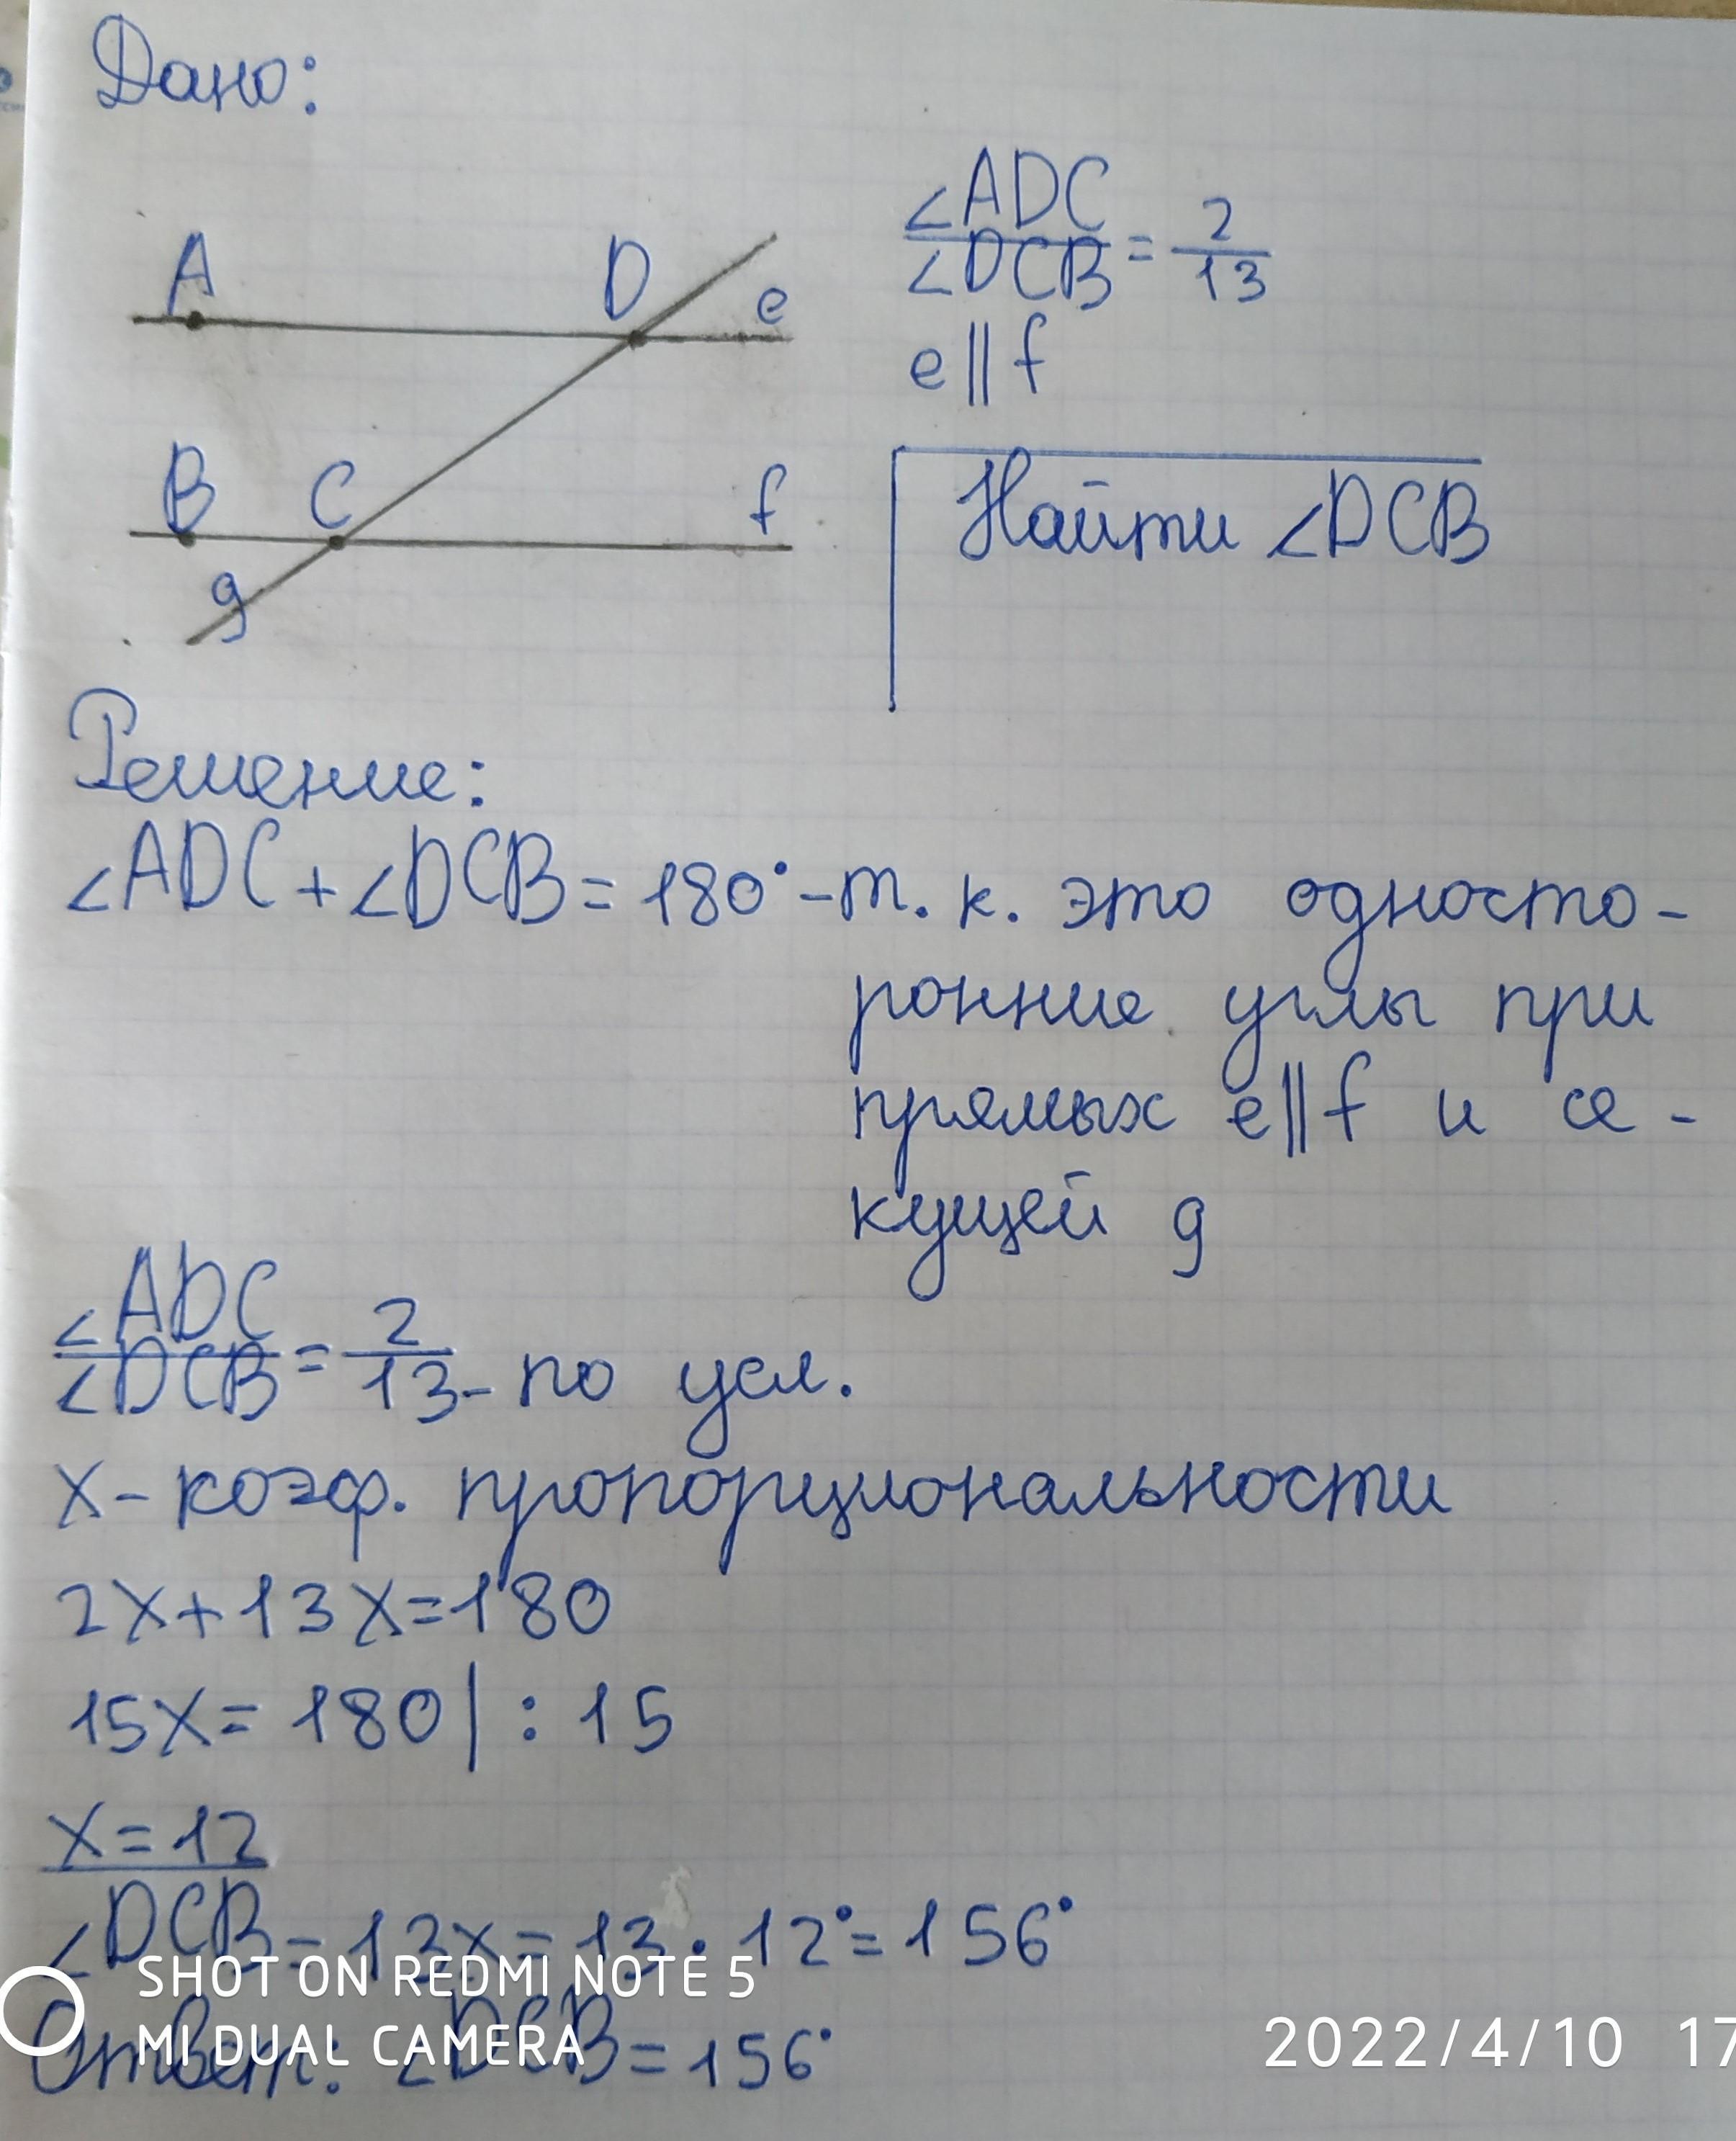 Дано:
∠ADC
∠DCB = 2/13
A D e
e || f
B C f
Найти ∠DCB
g
Решение:
∠ADC + ∠DCB = 180° - т. к. это односто-
ронние углы при
прямых e || f и се-
кущей g
∠ADC
∠DCB = 2/13 - по усл.
x - коэф. пропорциональности
2x + 13x = 180
15x = 180 | : 15
x = 12
∠DCB = 13x = 13 · 12° = 156°
SHOT ON REDMI NOTE 5
MI DUAL CAMERA
Ответ: ∠DCB = 156°
2022/4/10 17